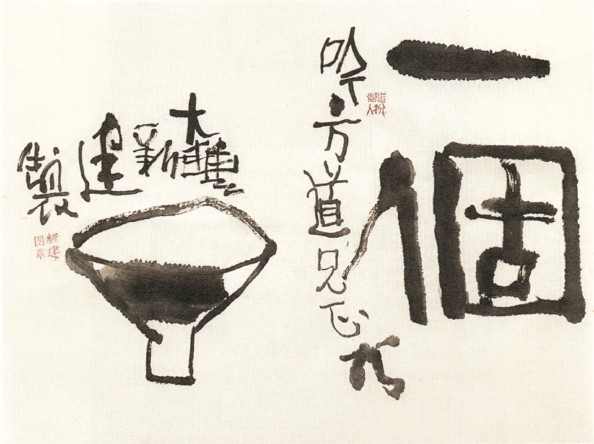 一個
吟方道兄正
大豐新建製